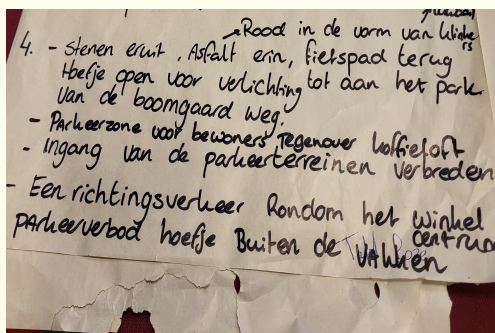 →Rood in de vorm van klinkers
4. - Stenen eruit, Asfalt erin, fietspad terug
Hoefje open voor verlichting tot aan het park
van de boomgaard weg.
- Parkeerzone voor bewoners Tegenover koffieloft
- Ingang van de parkeerterreinen verbreden
- Een richtingsverkeer Rondom het winkel
centrum
Parkeerverbod hoefje Buiten de
vakken